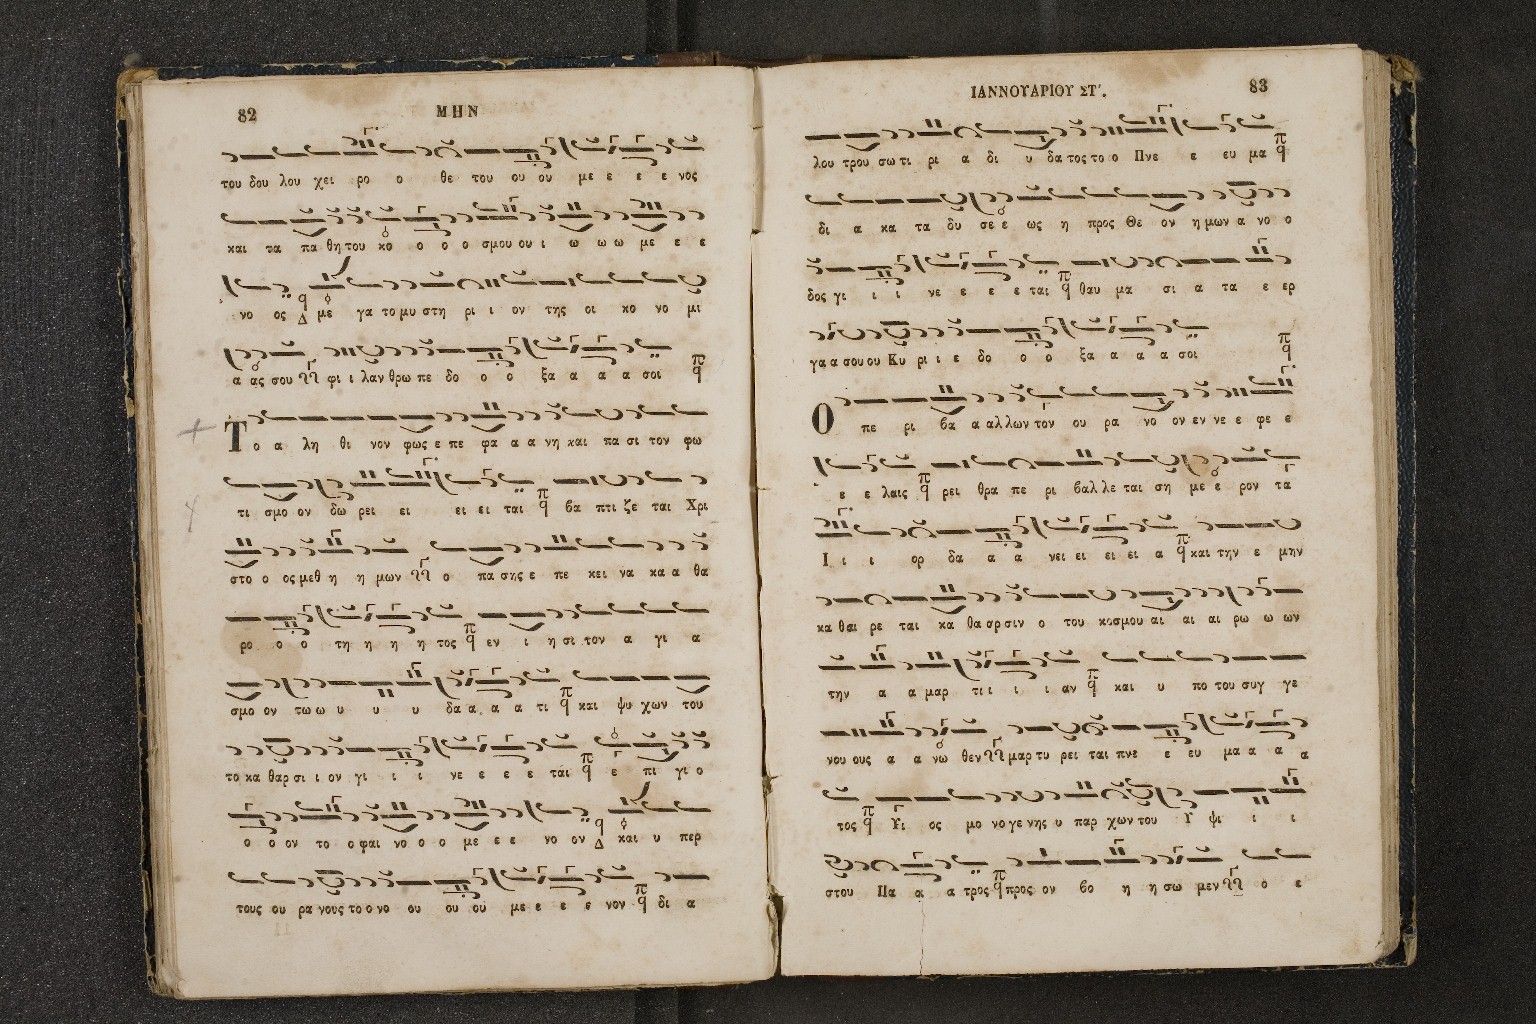 82 ΜΗΝ
του δου λου χει ρο ο θε του ου ου με ε ε ε νος
και τα πα θη του κο ο ο ο σμου ου ι ω ω ω με ε ε
νο ος Δ με γα το μυ στη ρι ι ον της οι κο νο μι
α ας σου φι ι λαν θρω πε δο ο ο ξα α α α σοι π q
Το α λη θι νον φως ε πε φα α α νη και πα σι τον φω
τι σμο ον δω ρει ει ει ει ται π q βα πτι ζε ται Χρι
στο ο ος μεθ η η μων ο πα σης ε πε κει να κα α θα
ρο ο ο τη η η η τος π q εν ι η σι τον α γι α
σμο ον τω ω υ υ υ δα α α α τι π q και ψυ χων του
το κα θαρ σι ι ον γι ι ι νε ε ε ε ται π q ε πι γι ο
ο ο ον το ο φαι νο ο ο με ε ε νο ον Δ και υ περ
τους ου ρα νους το ο νο ου ου ου με ε ε ε νον π q δι α
ΙΑΝΝΟΥΑΡΙΟΥ ΣΤ΄. 83
λου τρου σω τι ρι α δι υ δα τος το ο Πνε ε ευ μα π q
δι α κα τα δυ σε ε ως η προς Θε ον η μων α νο ο
δος γι ι ι νε ε ε ε ται π q θαυ μα σι α τα ε ερ
γα α σου ου Κυ ρι ι ε δο ο ο ξα α α α σοι π q
Ο πε ρι βα α αλ λων τον ου ρα νο ον εν νε ε φε ε
ε ε λαις π q ρει θρα πε ρι βαλ λε ται ση με ε ρον τα
Ι ι ι ορ δα α α νει ει ει ει α π q και την ε μην
κα θαι ρε ται κα θα αρ σιν ο του κοσμου αι αι αι ρω ω ων
την α α μαρ τι ι ι ι αν π q και υ πο του συγ γε
νου ους α α νω θεν μαρ τυ ρει ται πνε ε ευ μα α α α
τος π q Υι ος μο νο γε νης υ παρ χων του Υ ψι ι ι
στου Πα α α τρος π q προς ον βο η η σω μεν ο ε